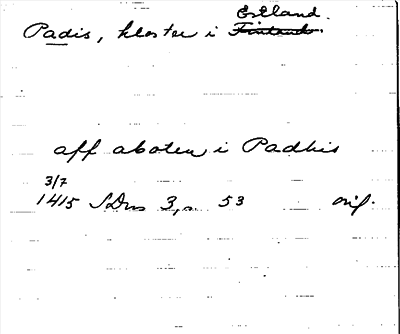 Estland.
Padis, kloster i Finland.
aff aboten i Padhis
3/7
1415 SDns 3, s. 53 orig.